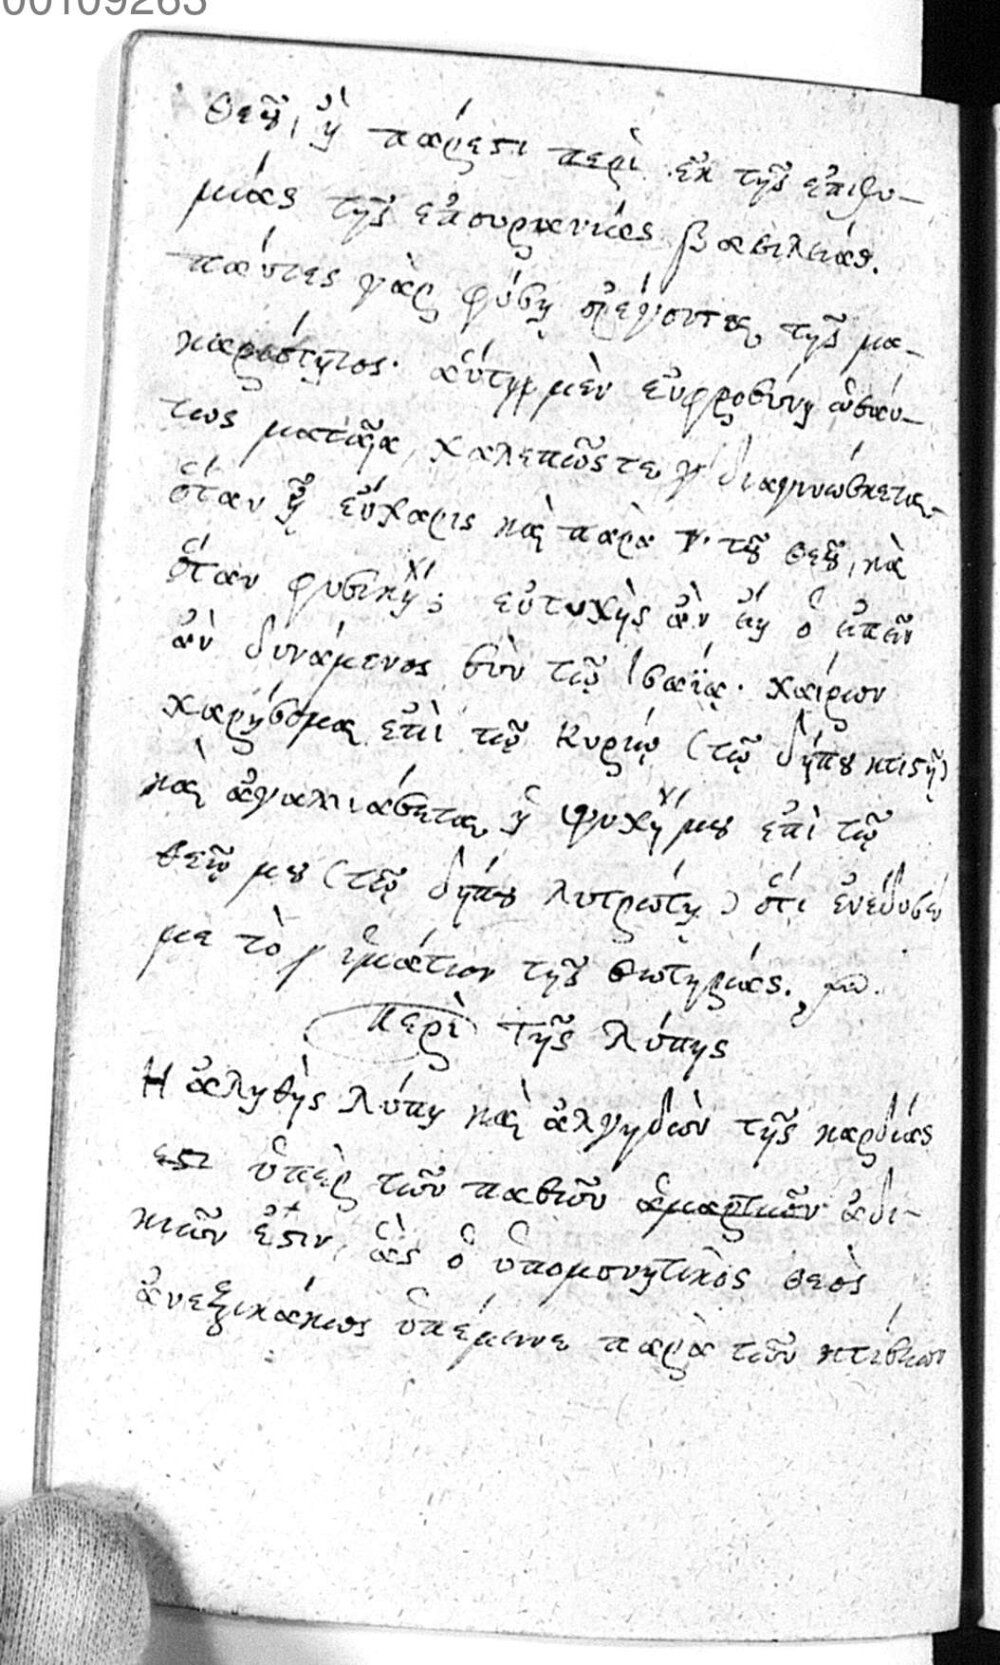 00109263
Θεοῦ, ἢ πάρεστι περὶ ἐκ τῆς ἐπιθυ-
μίας τῆς ἐπουρανίας βασιλείας.
πάντες γὰρ φύσῃ ὀρέγονται τῆς μα-
καριότητος. αὕτη μὲν εὐφροσύνη ὡσαύ-
τως ματαία, χαλεπῶς τε διαγινώσκεται
ὅταν ᾖ εὔχαρις καὶ παρὰ τοῦ Θεοῦ, καὶ
ὅταν φυσικὴ; εὐτυχὴς ἂν εἴη ὁ εἰπεῖν
ἂν δυνάμενος σὺν τῷ Ἰσαΐᾳ. χαίρων
χαρήσομαι ἐπὶ τῷ Κυρίῳ (τῷ δήπου κτιστῇ)
καὶ ἀγαλλιάσεται ἡ ψυχή μου ἐπὶ τῷ
θεῷ μου (τῷ δήπου λυτρωτῇ) ὅτι ἐνέδυσέν
με τὸ ἱμάτιον τῆς σωτηρίας.
περὶ τῆς λύπης
Η ἀληθὴς λύπη καὶ ἀλγηδὼν τῆς καρδίας
ἐστι ὑπὲρ τῶν παθῶν ἁμαρτιῶν ἀδι-
κιῶν ἐστιν, ἃς ὁ ὑπομονητικὸς θεὸς
ἀνεξικάκως ὑπέμεινε παρὰ τῶν κτίσεων